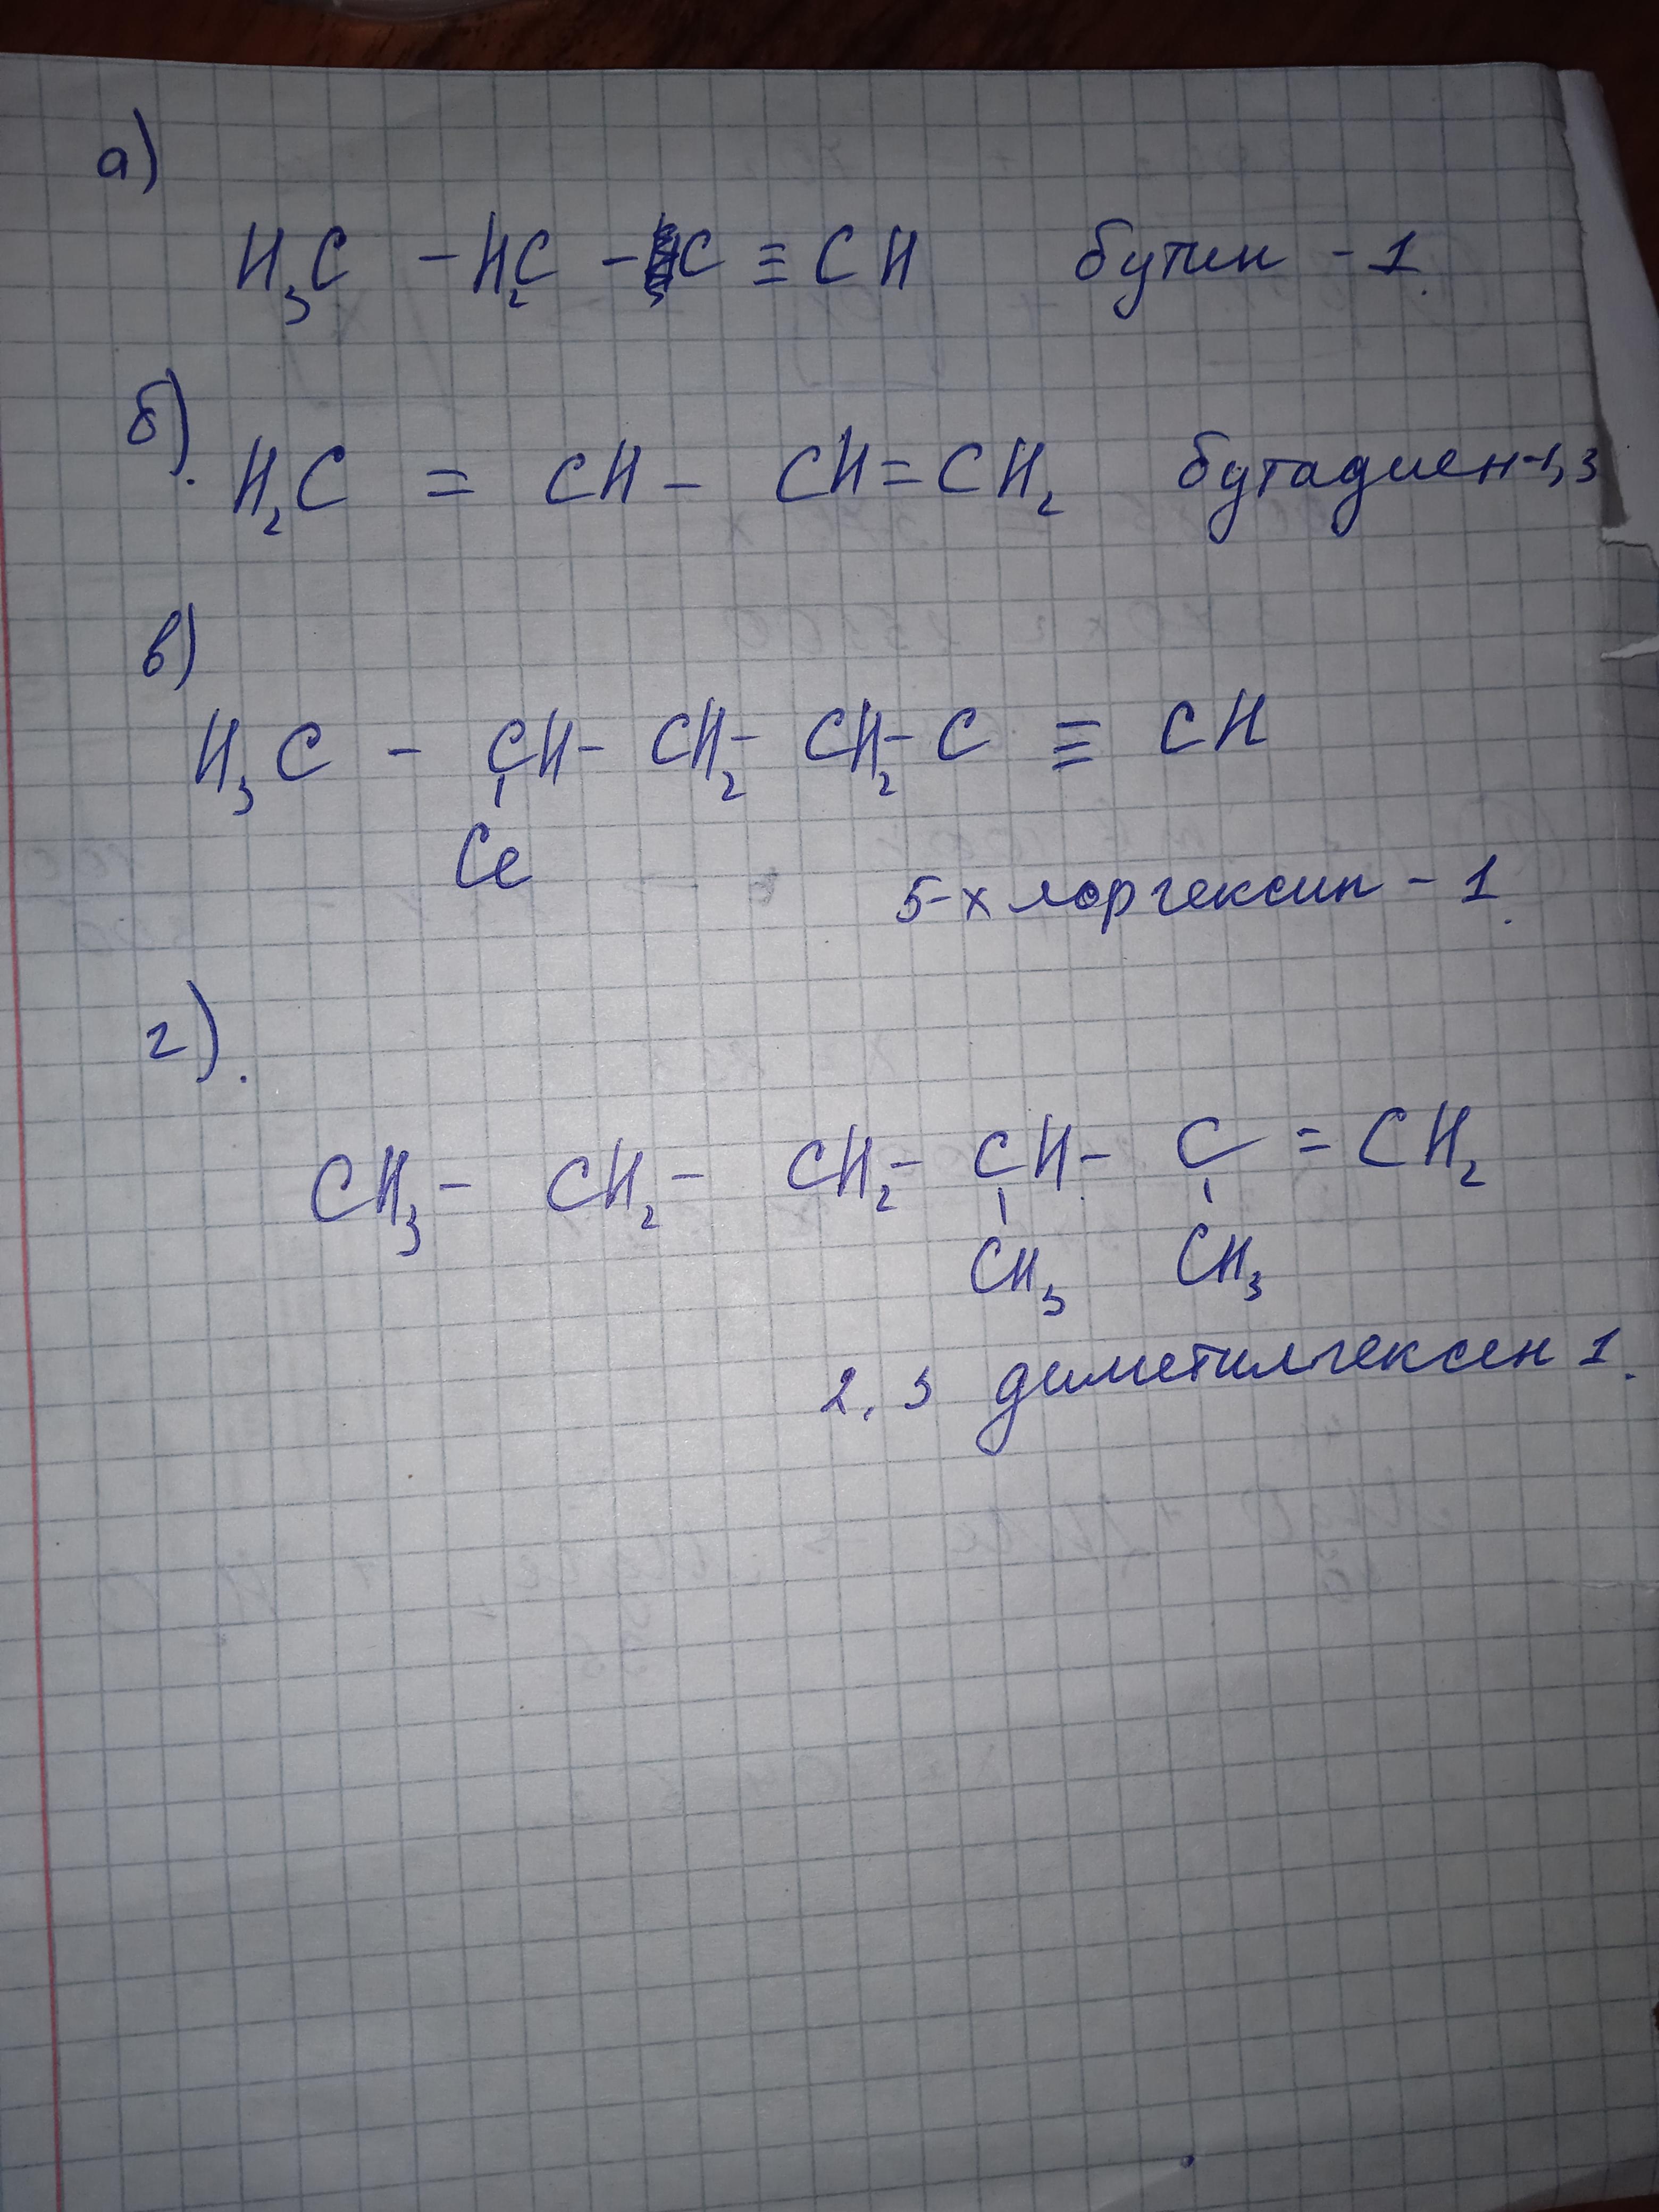 а)
H₃C - H₂C - C ≡ CH бутин - 1.
б).
H₂C = CH - CH = CH₂ бутадиен-1,3
в)
H₃C - CH - CH₂ - CH₂ - C ≡ CH
Cl
5-хлоргексин - 1.
г).
CH₃ - CH₂ - CH₂ - CH - C = CH₂
CH₃ CH₃
2,3 диметилгексен 1.